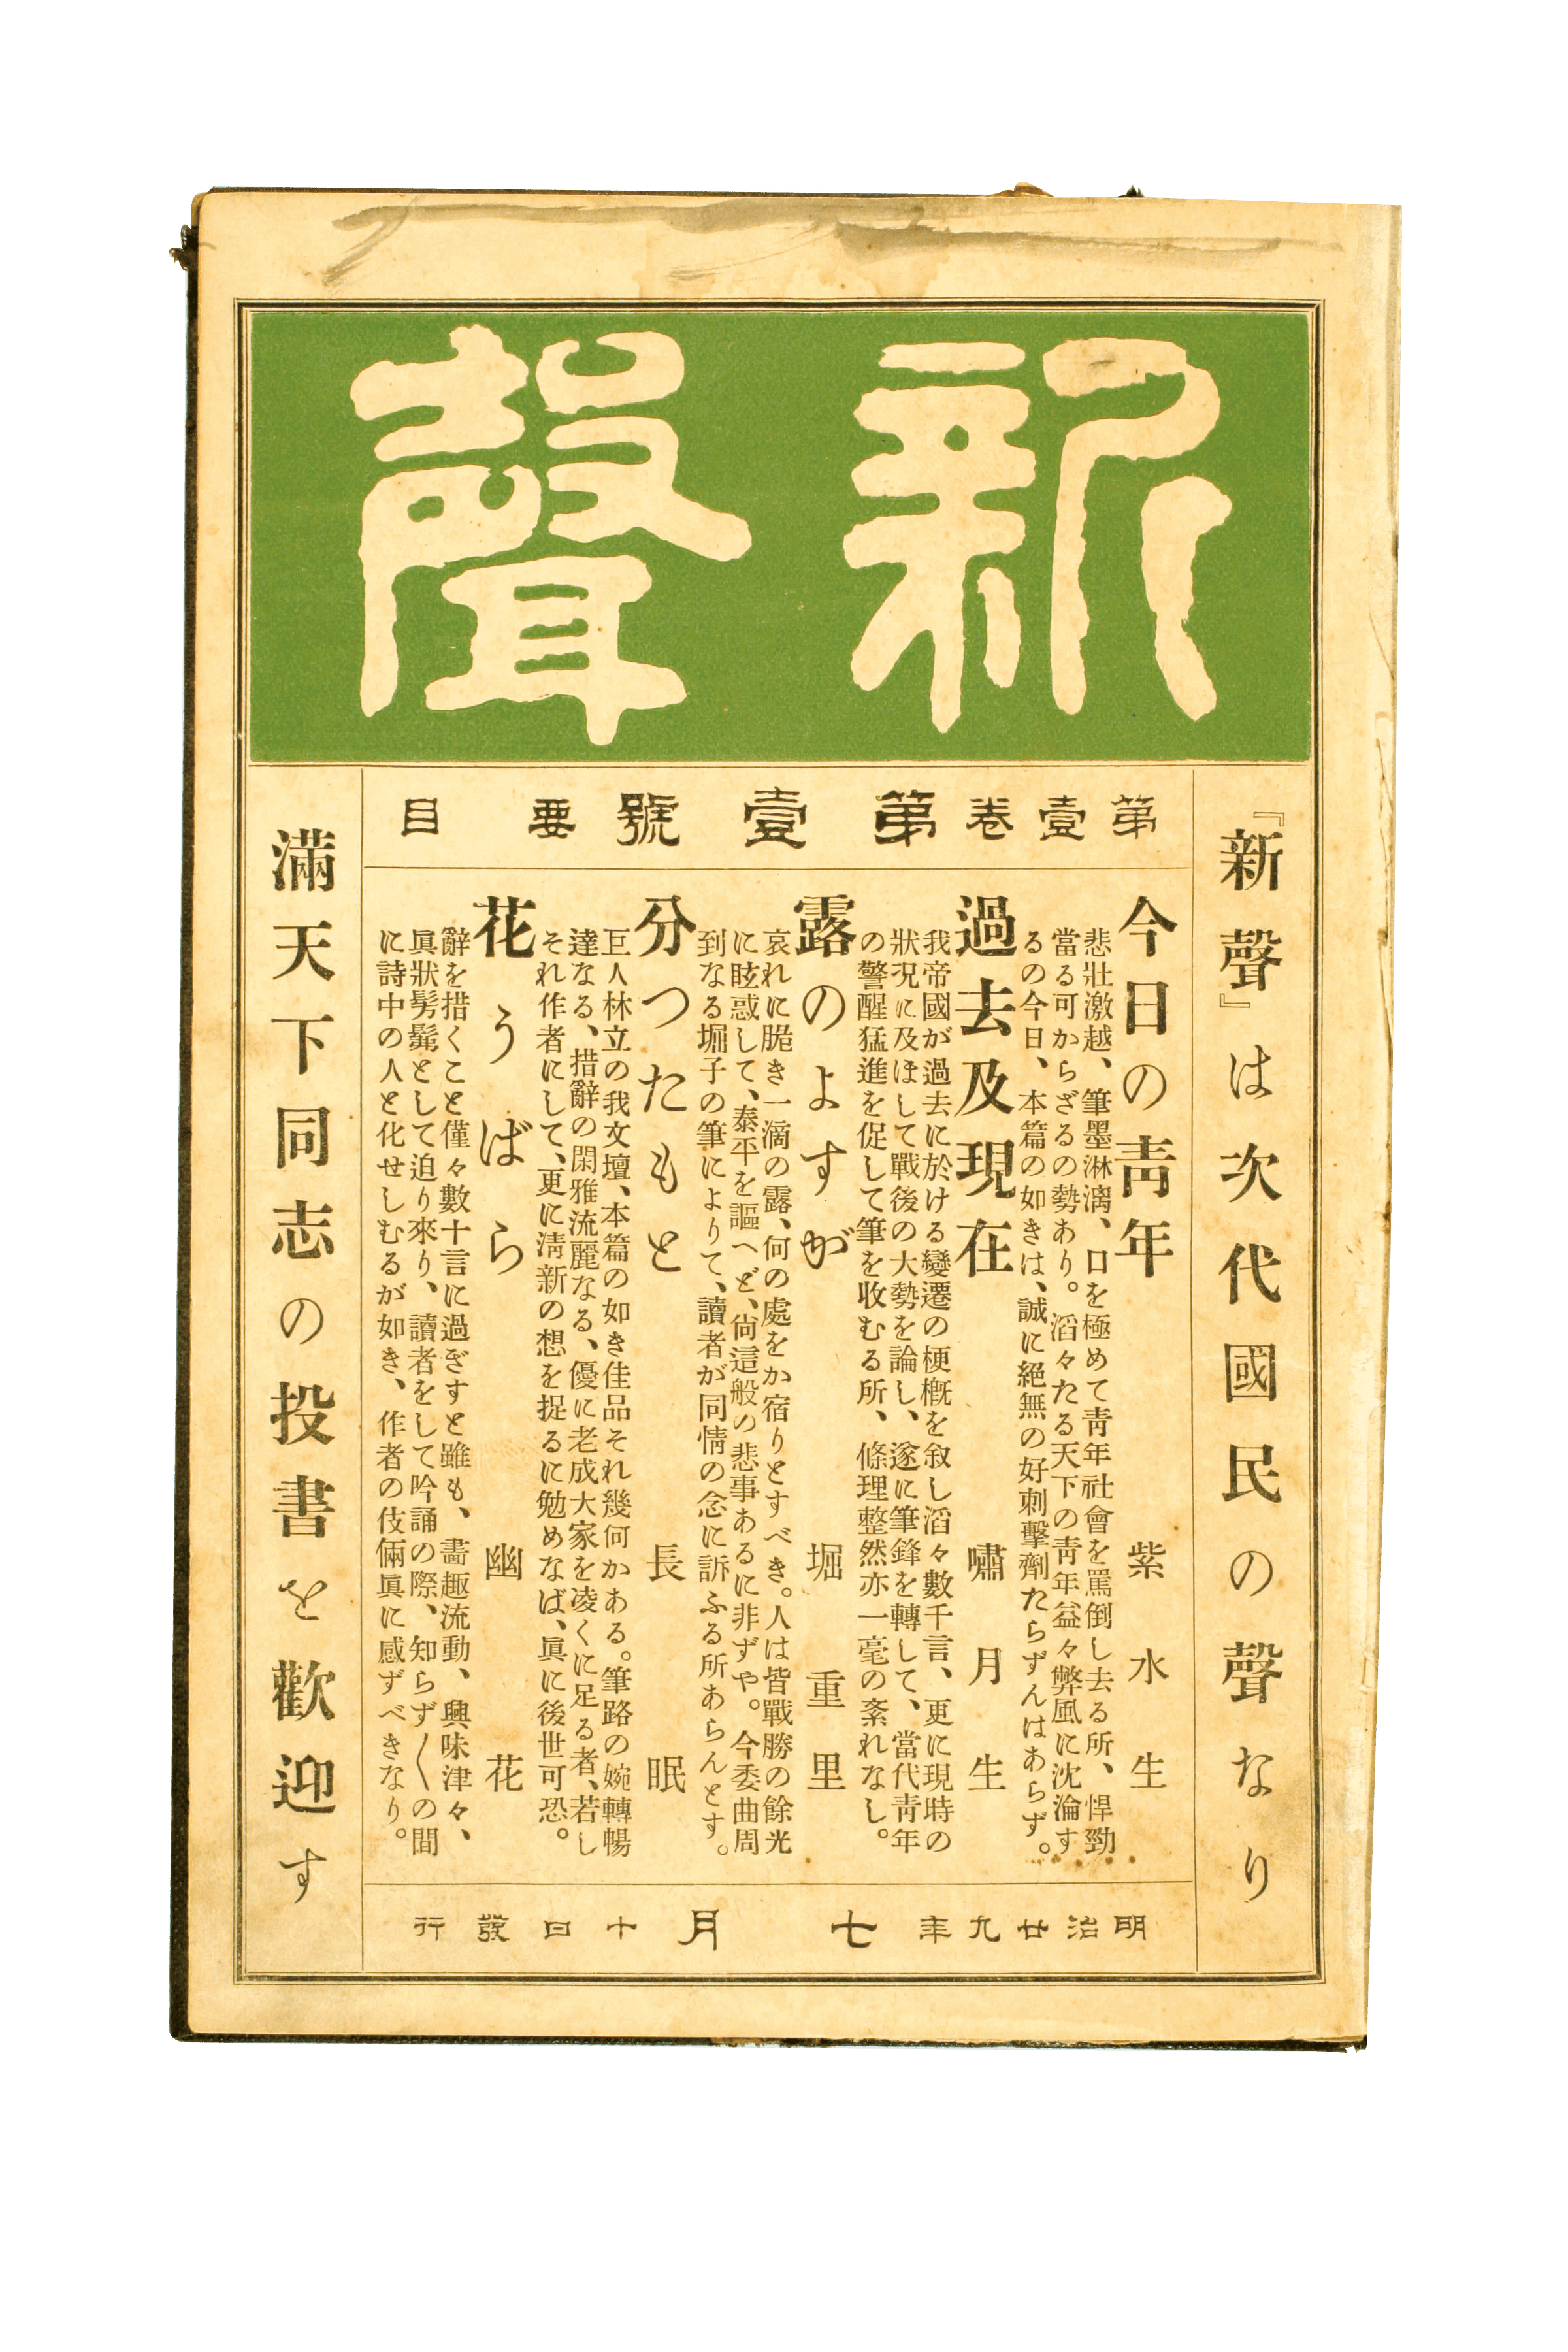 新聲
『新聲』は次代國民の聲なり
第壹卷第壹號要目
今日の靑年 紫水生
悲壯激越、筆墨淋漓、口を極めて靑年社會を罵倒し去る所、悍勁
當る可からざるの勢あり。滔々たる天下の靑年益々弊風に沈淪す
るの今日、本篇の如きは、誠に絕無の好刺擊劑たらずんはあらず。
過去及現在 嘯月生
我帝國が過去に於ける變遷の梗槪を敍し滔々數千言、更に現時の
狀況に及ぼして戰後の大勢を論し、遂に筆鋒を轉して、當代靑年
の警醒猛進を促して筆を收むる所、條理整然亦一毫の紊れなし。
露のよすが 堀重里
哀れに脆き一滴の露、何の處をか宿りとすべき。人は皆戰勝の餘光
に眩惑して、泰平を謳へど、尙這般の悲事あるに非ずや。今委曲周
到なる堀子の筆によりて、讀者が同情の念に訴ふる所あらんとす。
分つたもと 長眠
巨人林立の我文壇、本篇の如き佳品それ幾何かある。筆路の婉轉暢
達なる、措辭の閑雅流麗なる、優に老成大家を凌くに足る者、若し
それ作者にして、更に淸新の想を捉るに勉めなば、眞に後世可恐。
花うばら 幽花
辭を措くこと僅々數十言に過ぎすと雖も、畵趣流動、興味津々、
眞狀髣髴として迫り來り、讀者をして吟誦の際、知らず〱の間
に詩中の人と化せしむるが如き、作者の伎倆眞に感ずべきなり。
滿天下同志の投書を歡迎す
明治廿九年七月十日發行